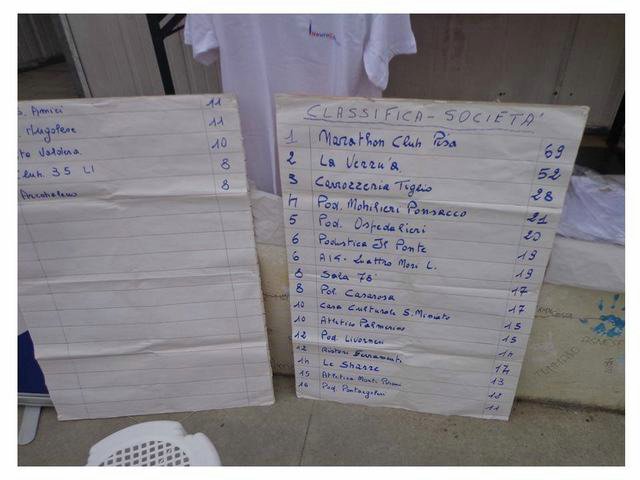 Amici 11
11
10
Club. 35 LI 8
8
CLASSIFICA - SOCIETA'
1 Marathon Club Pisa 69
2 La Verru'a 52
3 Carrozzeria Tiglio 28
4 Pod. Mobilieri Ponsacco 21
5 Pod. Ospedalieri 20
6 Podistica Il Ponte 19
6 Quattro Mori L. 19
8 Sala 78' 17
8 Pol. Casarosa 17
10 Casa Culturale S. Miniato 15
10 Atletica Palmerino 15
12 Pod. Livornesi 14
12
14 Le Sbarre 13
15 Atletica Monti Pisani 12
16 Pod. 11
AGNESE